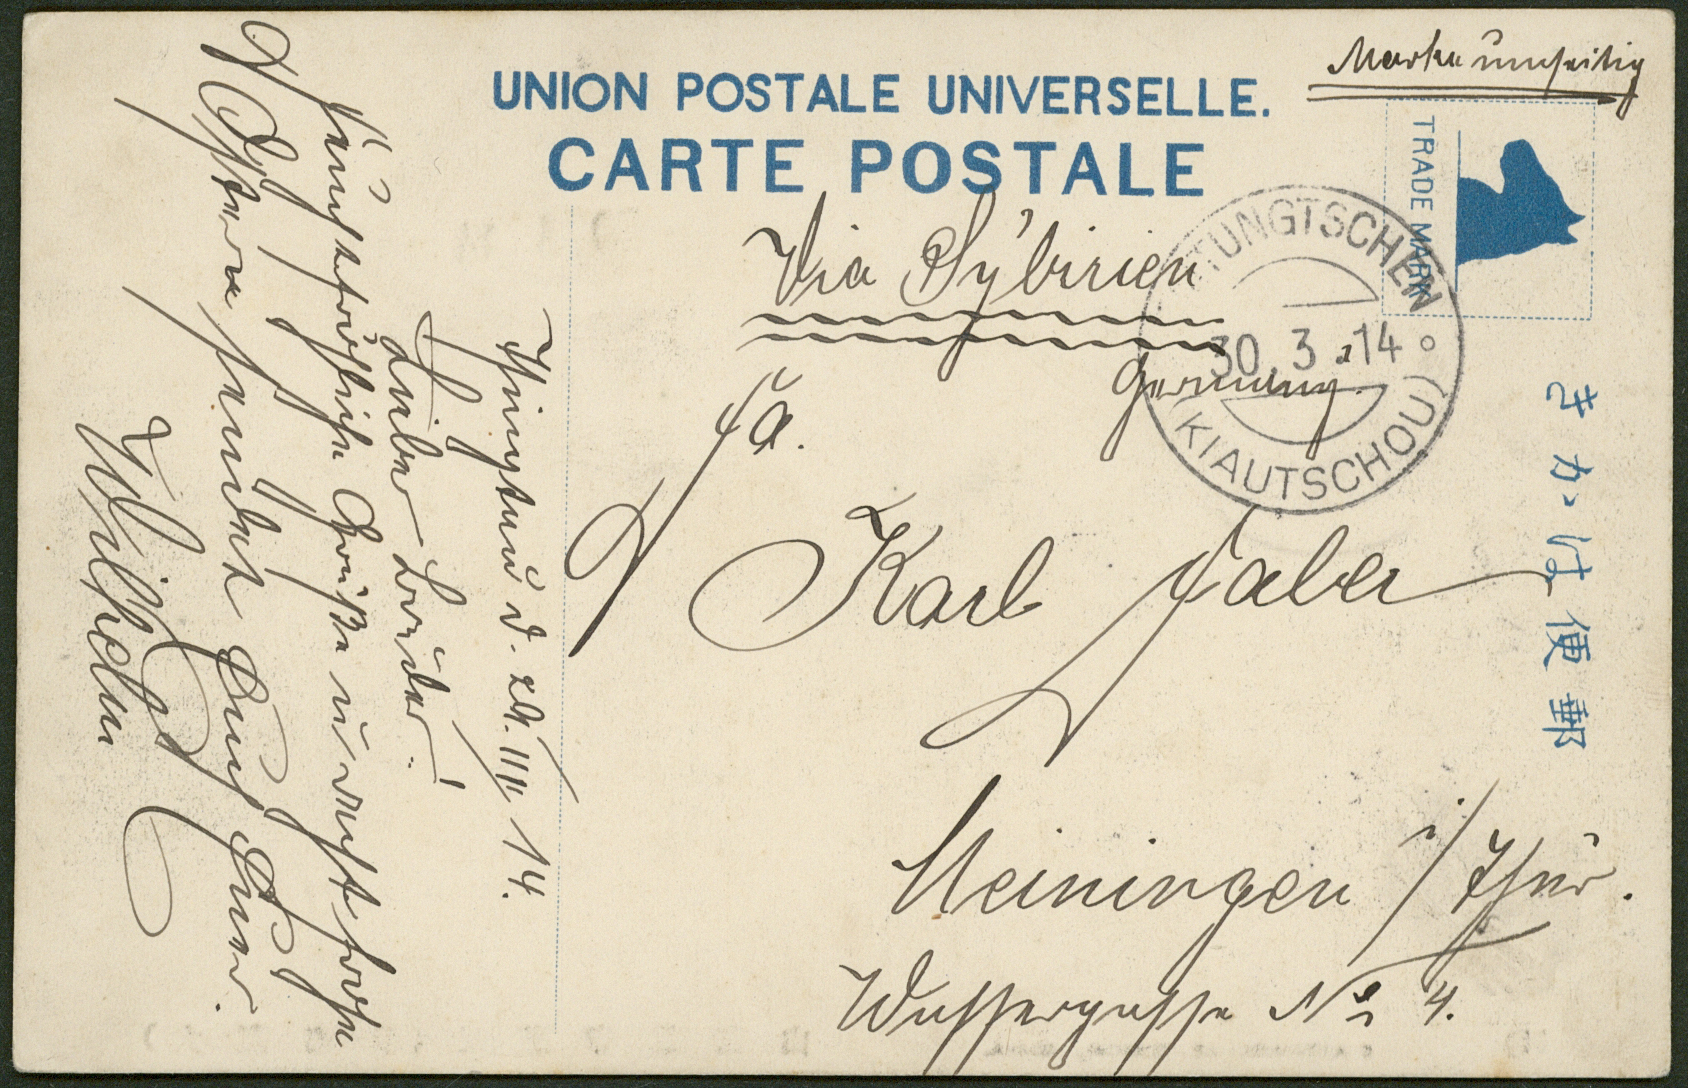 Marke umseitig
UNION POSTALE UNIVERSELLE.
CARTE POSTALE
TRADE MARK
Via Sybirien
Germany.
TUNGTSCHEN
30.3.14
(KIAUTSCHOU)
きかは便郵
Karl Faber
Meiningen i/Thür.
Wassergasse No 4.
Tsingtau d. 29.III/14.
Lieber Bruder!
herzliche Grüße u. recht frohe
Ostern sendet Euch Euer
Wilhelm